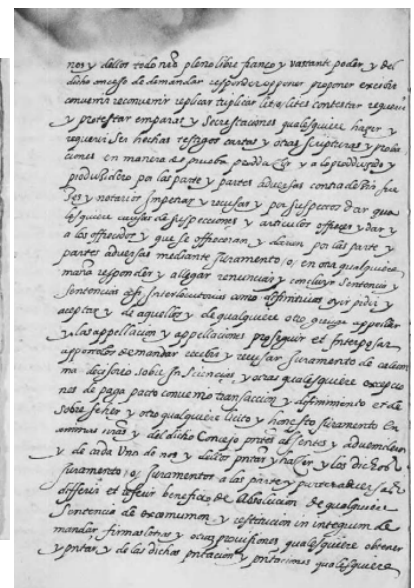 nos y dellos todo nro pleno libre franco y vastante poder y del
dicho concejo de demandar responder opponer proponer excebir
convenir reconvenir replicar triplicar lite o lites contestar requerir
y protestar emparas y Secrestaciones qualesquiere hazer y
requerir Ser hechas testigos cartas y otras scripturas y proba
ciones en manera de prueba y a lo produzido y
produzidero por las parte y partes adversas contradezir jue
zes y notarios Impetrar y recusar y por suspectos dar qua
lesquiere causas de suspecciones y articulos offrecer y dar y
a los offrecidos y que se offreceran y daran por las parte y
partes adversas mediante Juramento o en otra qualquiere
manera responder y allegar renunciar y concluyr Sentencia y
Sentencias assi Interlocutorias como diffinitivas oyr pidir y
aceptar y de aquellas y de qualquiere otro greuge appellar
y las appellacion y appellaciones proseguir et Interposar
apostolos demandar recebir y recusar Juramento de calum
nia decisorio sobre Sententias y otras qualesquiere excepcio
nes de paga pacto convenio transaccion y difinimiento et de
sobre seher y otro qualquiere licito y honesto Juramento En
animas nras y del dicho Concejo pntes absentes y advenideros
y de cada Uno de nos y dellos prestar y hazer y los dichos
Juramento o Juramentos a las parte y partes adversas
differir et referir beneficio de Absolucion de qualquiere
Sentencia de excomunion y restitucion in integrum de
mandar firmas letras y otras provisiones qualesquiere obtener
y pntar y de las dichas pntacion y pntaciones qualesquiere